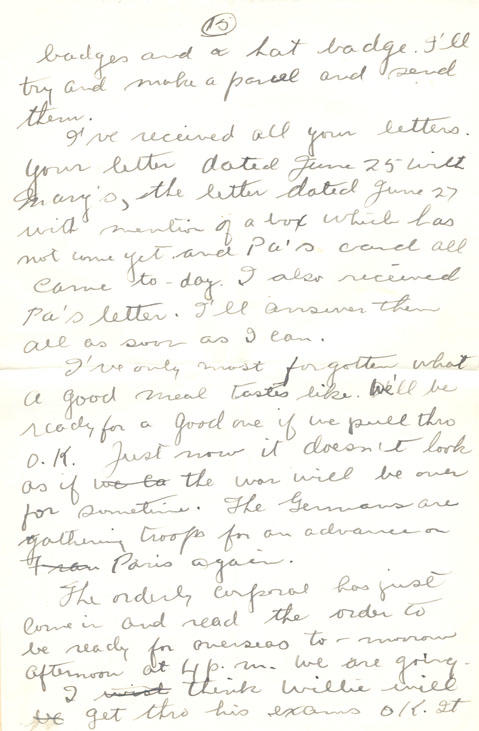 15
badges and a hat badge. I'll
try and make a parcel and send
them.
I've received all your letters.
Your letter dated June 25 with
Mary's, the letter dated June 27
with mention of a box which has
not come yet and Pa's card all
came to-day. I also received
Pa's letter. I'll answer them
all as soon as I can.
I've only most forgotten what
a good meal tastes like. We'll be
ready for a good one if we pull thro
O.K. Just now it doesn't look
as if we ca the war will be over
for sometime. The Germans are
gathering troops for an advance on
Fran Paris again.
The orderly corporal has just
come in and read the order to
be ready for overseas to-morrow
afternoon at 4 p.m. We are going.
I think Willie will
be get thro his exams OK. It